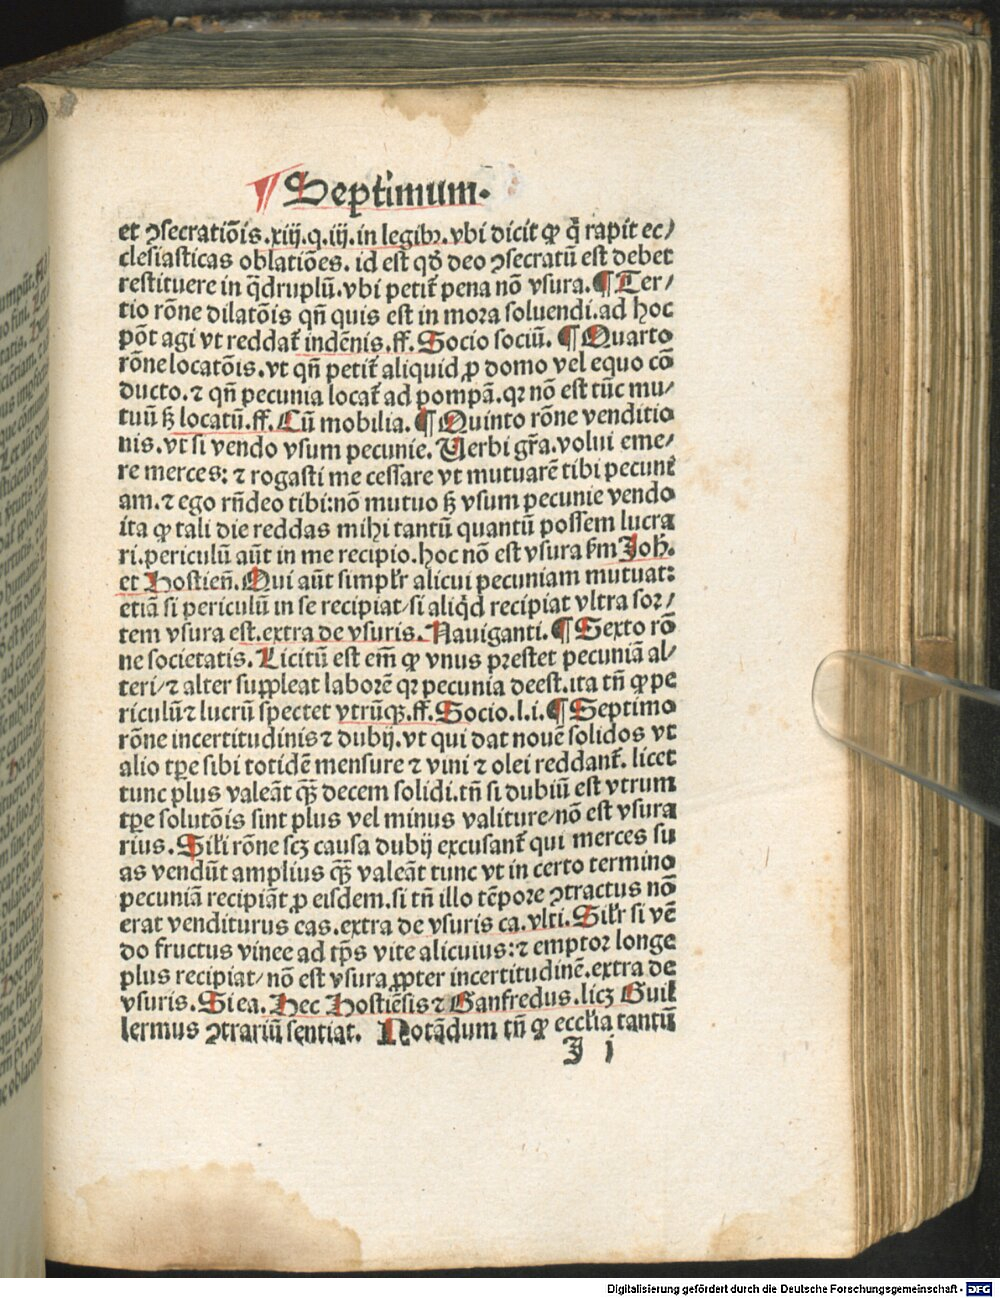 ¶ Septimum.
et ꝯsecratiōis.xiij.q.iij.in legibꝫ.vbi dicit ꝙ q̇ rapit ec/
clesiasticas oblatiōes. id est qd̓ deo ꝯsecratū est debet
restituere in q̄druplū.vbi petit᷑ pena nō vsura.¶ Ter/
tio rōne dilatōis qn̄ quis est in mora soluendi.ad hoc
pōt agi vt reddat᷑ indēnis.ff.Socio sociū. ¶ Quarto
rōne locatōis.vt qn̄ petit᷑ aliquid ꝓ domo vel equo cō
ducto.⁊ qn̄ pecunia locat᷑ ad pompā.qꝛ nō est tūc mu/
tuū ß locatū.ff.Cū mobilia.¶ Quinto rōne venditio
nis.vt si vendo vsum pecunie.Uerbi gr̄a.volui eme/
re merces: ⁊ rogasti me cessare vt mutuarē tibi pecuni
am.⁊ ego rn̄deo tibi:nō mutuo ß vsum pecunie vendo
ita ꝙ tali die reddas mihi tantū quantū possem lucra
ri.periculū aūt in me recipio.hoc nō est vsura ẜm Joh̄.
et Hostien̄.Qui aūt simpl̓r alicui pecuniam mutuat:
etiā si periculū in se recipiat/si aliq̇d recipiat vltra sor/
tem vsura est.extra de vsuris.Nauiganti.¶ Sexto rō
ne societatis.Licitū est em̄ ꝙ vnus prestet pecuniā al/
teri/⁊ alter suppleat laborē qꝛ pecunia deest.ita tn̄ ꝙ pe
riculū⁊ lucrū spectet vtrūqꝫ.ff.Socio.l.i.¶ Septimo
rōne incertitudinis ⁊ dubij.vt qui dat nouē solidos vt
alio tꝑe sibi totidē mensure ⁊ vini ⁊ olei reddant᷑. licet
tunc plus valeāt qꝫ̄ decem solidi.tn̄ si dubiū est vtrum
tꝑe solutōis sint plus vel minus valiture/nō est vsura
rius.Sil̓i rōne scꝫ causa dubij excusant᷑ qui merces su
as vendūt amplius qꝫ̄ valeāt tunc vt in certo termino
pecuniā recipiāt ꝓ eisdem.si tn̄ illo tēpore ꝯtractus nō
erat venditurus eas.extra de vsuris ca.vlti.Sil̓r si vē
do fructus vinee ad tp̄s vite alicuius:⁊ emptor longe
plus recipiat/nō est vsura ꝓpter incertitudinē.extra de
vsuris.Si ea.Hec Hostiēsis ⁊ Ganfredus.licꝫ Guil
lermus ꝯtrariū sentiat. Notādum tn̄ ꝙ eccl̓ia tantū
I j
Digitalisierung gefördert durch die Deutsche Forschungsgemeinschaft - DFG